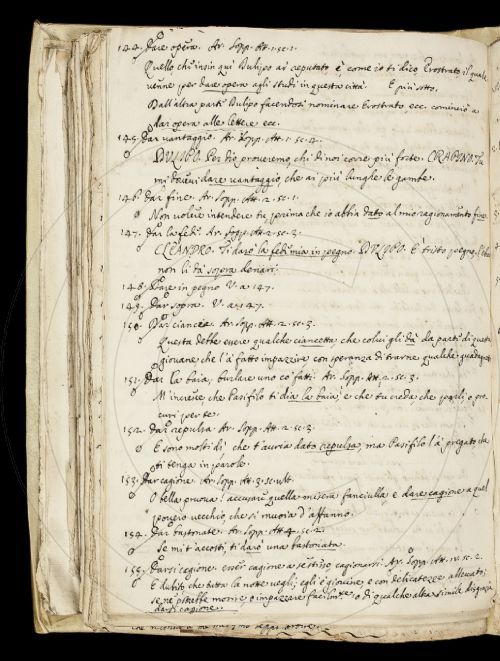 144. Dare opera. Ar. Sopp. Att. 1. sc. 1.
Quello ch'insin qui Dulipo ai reputato è, come io ti dico, Erostrato il quale
venne per dare opera agli studi in questa città. E più sotto.
Dall'altra parte Dulipo facendosi nominare Erostrato ecc. cominciò a
dar opera alle lettere ecc.
145. Dar vantaggio. Ar. Sopp. Att. 1. sc. 4.
DULIPO. Per Dio, proveremo, chi di noi corre più forte. CRAPINO. Tu
mi devevi dare vantaggio, che ai più lunghe le gambe.
146. Dar fine. Ar. Sopp. Att. 2. sc. 1.
Non volere intendere tu prima che io abbia dato al mio ragionamento fine.
147. Dar la fede. Ar. Sopp. Att. 2. sc. 3.
CLEANDRO. Ti darò la fede mia in pegno. DULIPO. È tristo pegno,
non li dà sopra denari.
148. Dare in pegno V. a. 147.
149. Dar sopra. V. a. 147.
150. Dar ciancie Ar. Sopp. Att. 2. sc. 3.
Questa debbe essere qualche ciancetta che colui gli dà da parte di questa
giovane che l'à fatto impazzire con speranza di trarne qualche
151. Dar la baia, burlare uno co' fatti. Ar. Sopp. Att. 2. sc. 3.
M'incresce che Pasifilo ti dia la baia, e che tu creda che parli, o pro-
curi per te.
152. Dar repulsa Ar. Sopp. Att. 2. sc. 3.
E sono molti dì che t'avria dato repulsa, ma Pasifilo l'à pregato che
ti tenga in parole.
153. Dar cagione. Ar. Sopp. Att. 3. sc. ult.
O bella pruova! accusare quella misera fanciulla e dare cagione a quel
povero vecchio che si muoia d'affanno.
154. Dar bastonate. Ar. Sopp. Att. 4. sc. 2.
Se mi t'accosti, ti darò una bastonata.
155. Darsi cagione. esser cagione a se stesso, cagionarsi. Ar. Sopp. Att. IV. sc. 2.
E dubito che tutta la notte vegli; egli è giovine, e con delicatezze allevato;
se ne potrebbe morire o impazzare o di qualche altra simile disgrazia
darsi cagione.